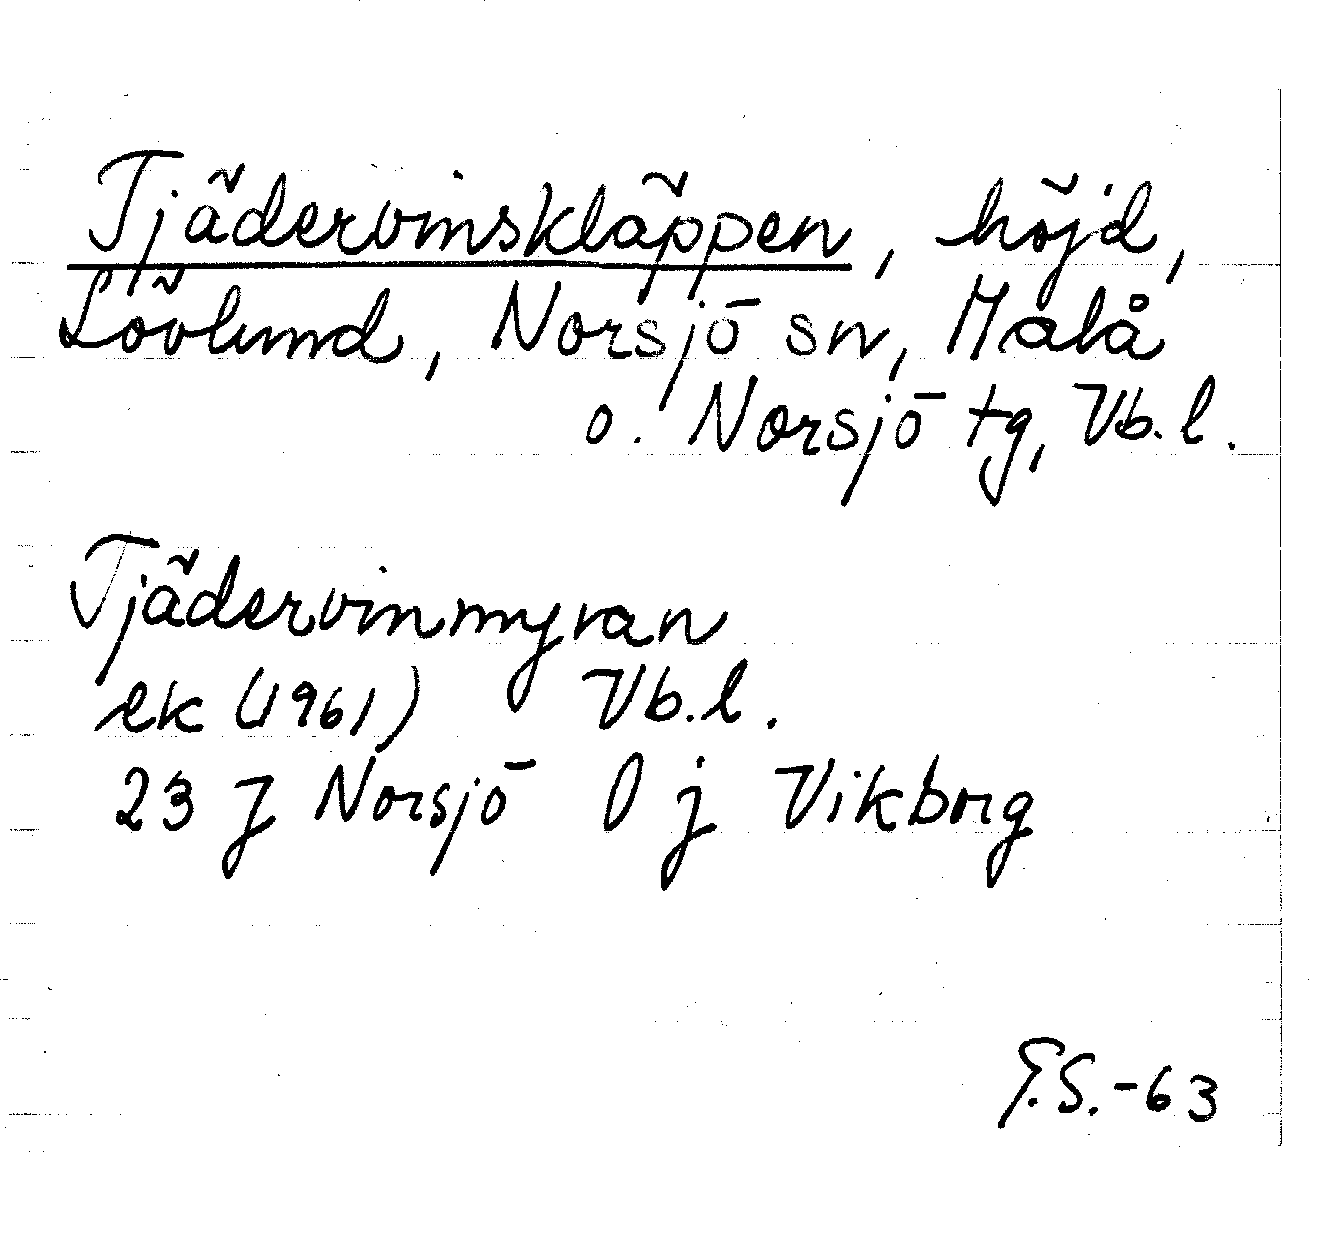 Tjädervinskläppen, höjd,
Lövlund, Norsjö sn, Malå
o. Norsjö tg, Vb.l.
Tjädervinmyran
ek (1961) Vb.l.
23 J Norsjö 0 j Vikborg
G.S.-63